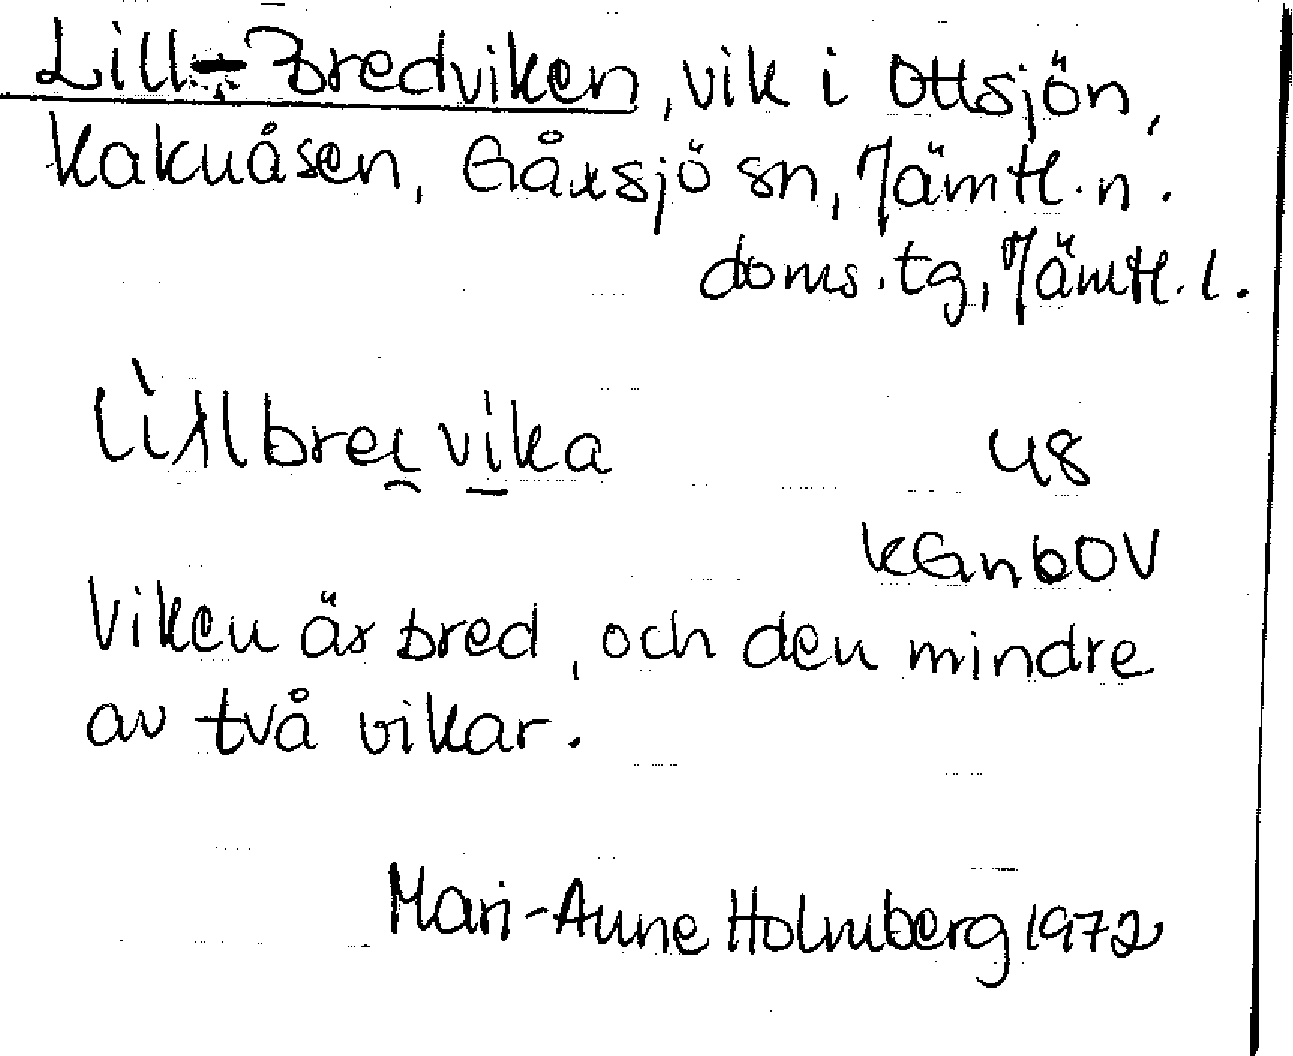 Lill-Bredviken, vik i Ottsjön,
Kakuåsen, Gåxsjö sn, Jämtl. n.
doms. tg, Jämtl. l.
48
KGnbOV
Viken är bred, och den mindre
av två vikar.
Mari-Anne Holmberg 1972